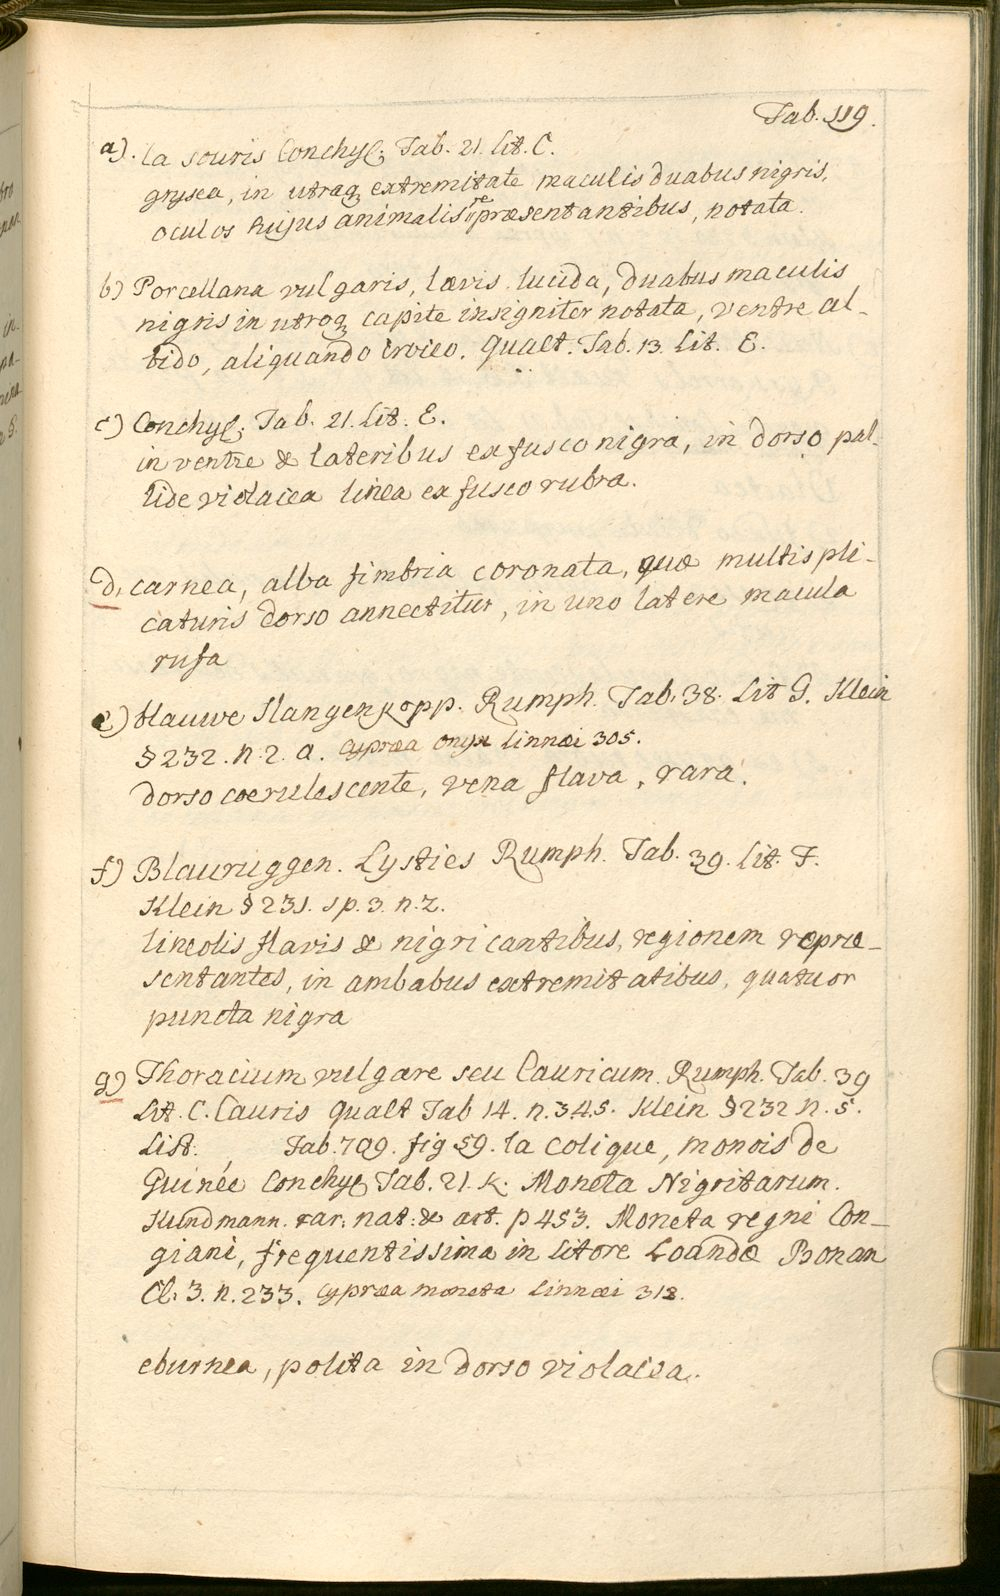 Tab. 119.
a). la souris Conchyl. Tab. 21. Lit. C.
grysea, in utraq extremitate maculis duabus nigris,
oculos hujus animalis repræsentantibus, notata.
b) Porcellana vulgaris, lævis lucida, duabus maculis
nigris in utroq capite insigniter notata, ventre al-
bido, aliquando croceo. Gualt. Tab. 13. Lit. E.
c) Conchyl. Tab. 21. Lit. E.
in ventre & lateribus ex fusco nigra, in dorso pal-
lide violacea linea ex fusco rubra.
d, carnea, alba fimbria coronata, quæ multis pli-
caturis dorso annectitur, in uno latere macula
rufa
e) blauwe Slangenkopp. Rumph. Tab. 38. Lit G. Klein
§ 232. n. 2. a. Cypræa onyx Linnæi 305.
dorso coerulescente, vena flava, rara.
f) Blauruggen. Lysties Rumph. Tab. 39. Lit. F.
Klein § 231. sp. 3. n. 2.
lineolis flavis & nigricantibus, regionem repræ-
sentantes, in ambabus extremitatibus, quatuor
puncta nigra
g) Thoracium vulgare seu Cauricum. Rumph. Tab. 39
Lit. C. Cauris Gualt Tab 14. n. 3. 4. 5. Klein § 232 n. 5.
List. Tab. 709. fig 59. la colique, monois de
Guinée Conchyl Tab. 21. K. Moneta Nigritarum.
Kundmann. rar. nat. & art. p 453. Moneta regni Con-
giani, frequentissima in litore Loandæ Bonan
Cl. 3. n. 233. Cypræa moneta Linnæi 312.
eburnea, polita in dorso violacea.